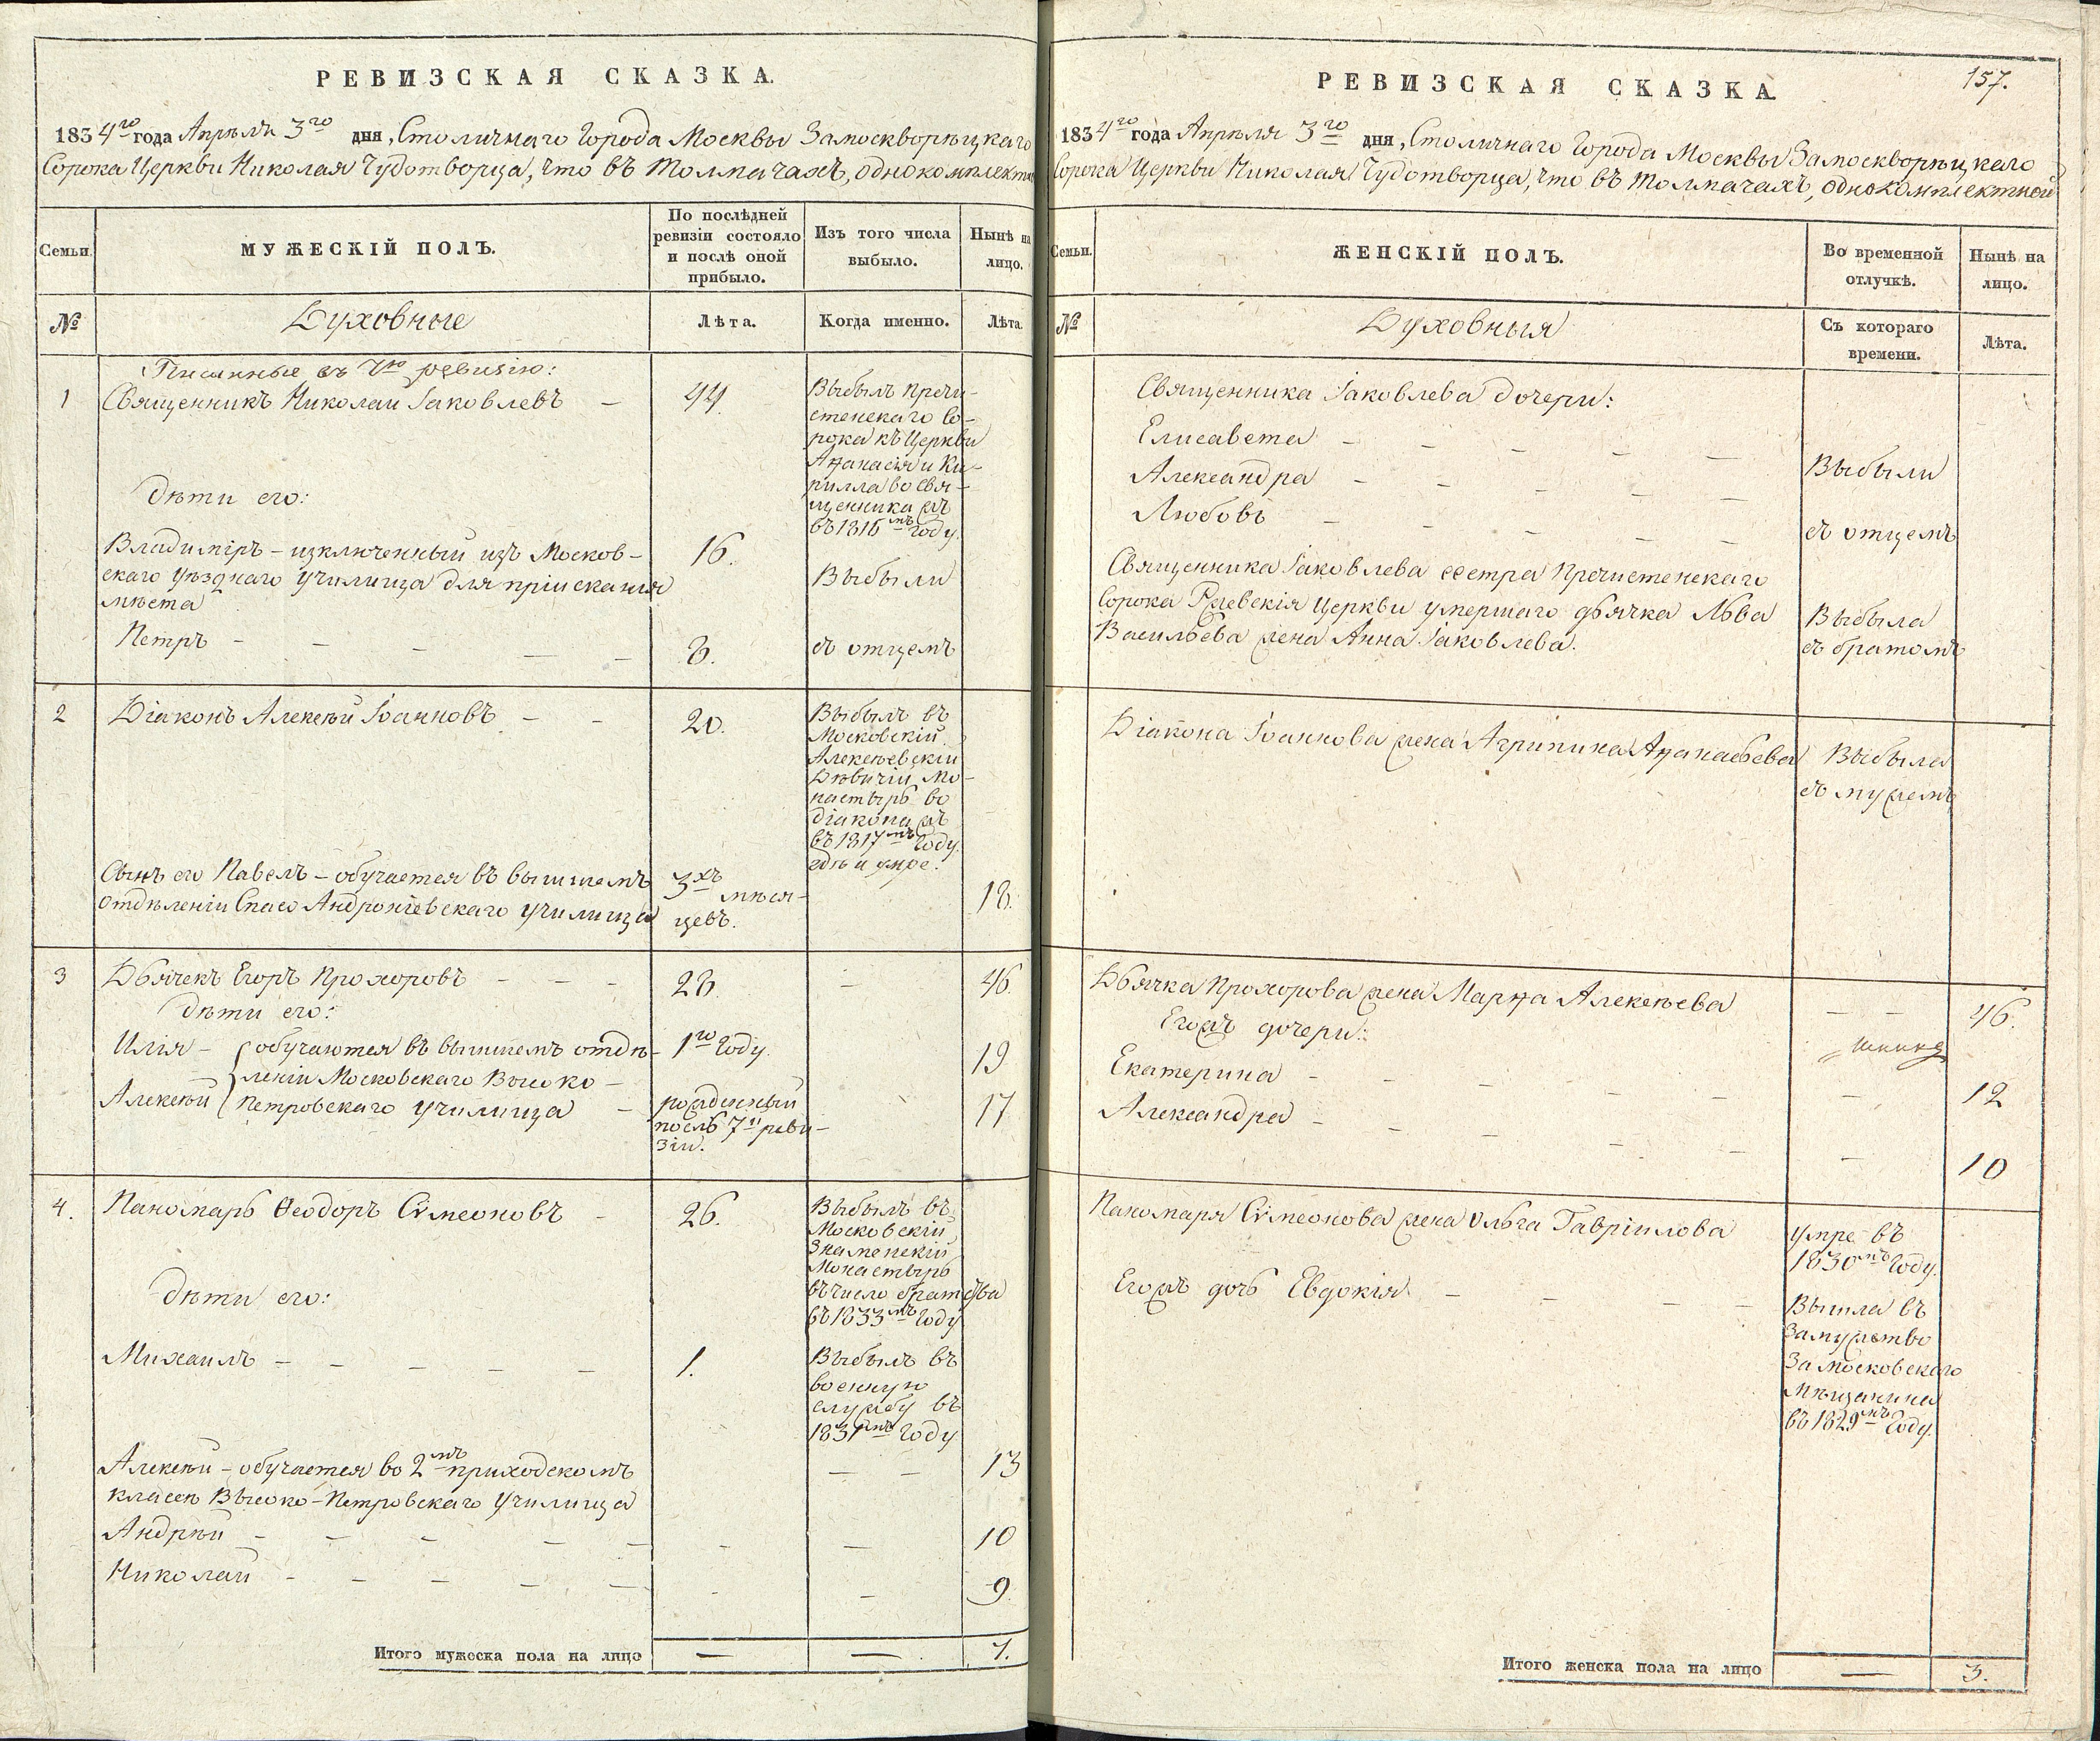 РЕВИЗСКАЯ СКАЗКА.
1834го года Апрѣля 3го дня, Столичнаго Города Москвы Замоскворѣцкаго
Сорока Церкви Николая Чудотворца, что въ Толмачахъ, однокомплектн
Семьи.
МУЖЕСКІЙ ПОЛЪ.
По послѣдней
ревизіи состояло
и послѣ оной
прибыло.
Изъ того числа
выбыло.
Нынѣ на
лицо.
№
Духовные
Лѣта.
Когда именно.
Лѣта.
Писанные въ 7ю ревизію:
1
Священникъ Николай Іаковлевъ –
44.
Выбылъ Пречи-
стенскаго Со-
рока къ Церкви
Аѳанасія и Ки-
рилла во свя-
щенника жъ
въ 1816мъ году.
Дѣти его:
Владиміръ – изключенный изъ Москов-
скаго уѣзднаго училища для пріисканія
мѣста
16.
Выбыли
Петръ – – – – –
8.
съ отцемъ
2
Діаконъ Алексѣй Іоанновъ – –
20.
Выбылъ въ
Московскій
Алексѣевскій
Дѣвичій Мо-
настырь во
діакона жъ
въ 1817мъ году.
гдѣ и умре.
Сынъ его Павелъ – обучается въ вышшемъ
отдѣленіи Спасо Андроніевскаго училища
3хъ мѣся-
цевъ.
18.
3
Дьячекъ Егоръ Прохоровъ – – –
28.
–
46.
Дѣти его:
Илія – обучаются въ вышшемъ отдѣ-
леніи Московскаго Высоко-
Алексѣй петровскаго училища –
1го году.
19
рожденный
послѣ 7й реви-
зіи.
17
4.
Пономарь Ѳеодоръ Сѵмеоновъ –
26.
Выбылъ въ
Московскій
Знаменскій
Монастырь
въ число братства
въ 1833мъ году
Дѣти его:
Михаилъ – – – – –
1.
Выбылъ въ
военную
службу въ
1831мъ году
Алексѣй – обучается во 2мъ приходскомъ
классѣ Высоко-Петровскаго училища
– –
13
Андрей – – – – –
–
–
10
Николай – – – – –
–
–
9.
Итого мужеска пола на лицо
—
—
7.
157.
РЕВИЗСКАЯ СКАЗКА.
1834го года Апрѣля 3го дня, Столичнаго Города Москвы Замоскворѣцкаго
Сорока Церкви Николая Чудотворца, что въ Толмачахъ, однокомплектной
Семьи.
ЖЕНСКІЙ ПОЛЪ.
Во временной
отлучкѣ.
Нынѣ на
лицо.
№
Духовныя
Съ котораго
времени.
Лѣта.
Священника Іаковлева дочери:
Елисавета – – – – –
Александра – – – – –
Любовь – – – – –
Выбыли
съ отцемъ
Священника Іаковлева сестра Пречистенскаго
Сорока Ржевскія Церкви умершаго дьячка Льва
Васильева жена Анна Іаковлева.
Выбыла
съ братомъ
Діакона Іоаннова жена Агрипина Аѳанасьева
Выбыла
съ мужемъ
Дьячка Прохорова жена Марѳа Алексѣева
– –
46.
Егожъ дочери:
Екатерина – – – – –
–
12
Александра – – – – –
–
10
Пономаря Сѵмеонова жена Ольга Гавріилова
умре въ
1830мъ году.
Егожъ дочь Евдокія – – – –
Вышла въ
замужство
за Московскаго
мѣщанина
въ 1829мъ году.
Итого женска пола на лицо
—
3.